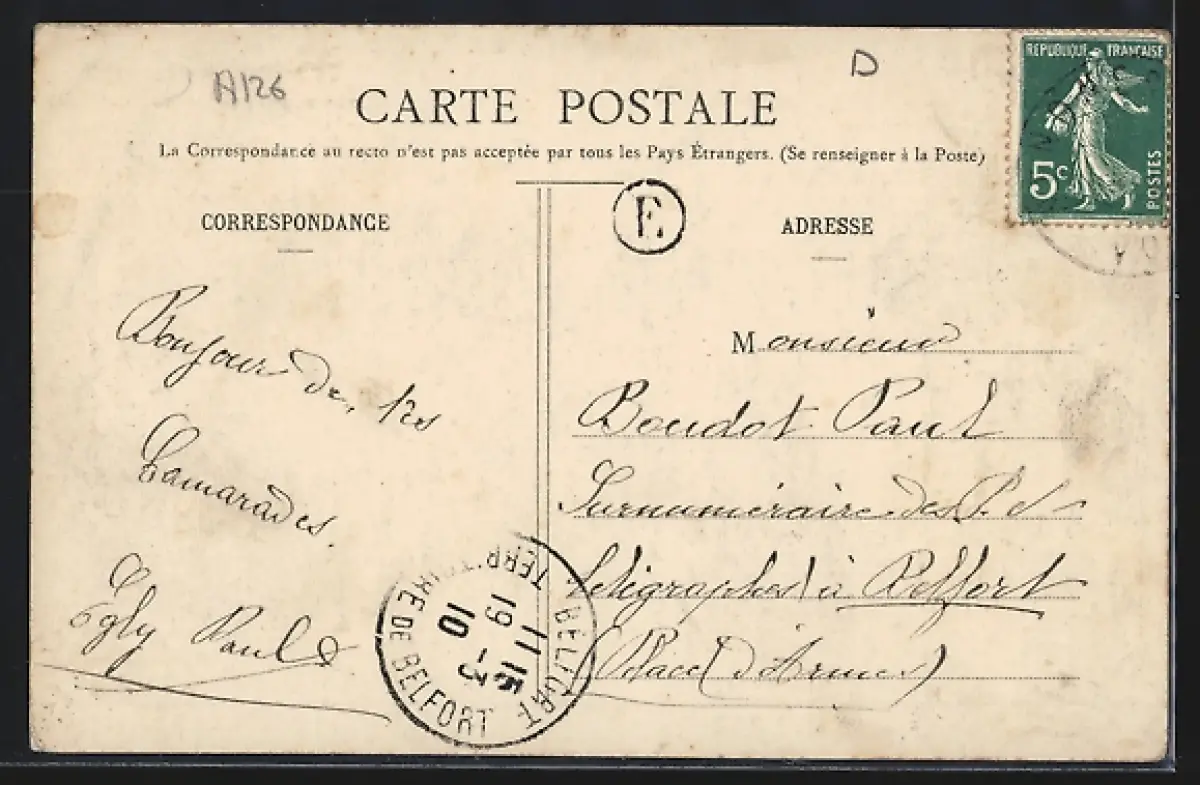 A126
D
REPUBLIQUE FRANÇAISE
5c
POSTES
CARTE POSTALE
La Correspondance au recto n'est pas acceptée par tous les Pays Étrangers. (Se renseigner à la Poste)
E
CORRESPONDANCE
Bonjour des
Camarades
Egly Paul
ADRESSE
Monsieur
Boudot Paul
Surnuméraire des P. et
Télégraphes à Belfort
(Place d'Armes)
TERRITOIRE DE BELFORT
11 15
19 - 3
10